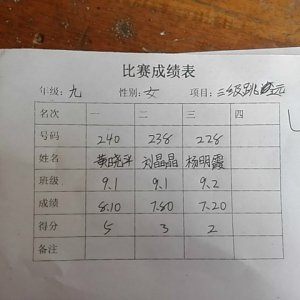 比赛成绩表
年级：九 性别：女 项目：三级跳远
名次 一 二 三 四
号码 240 238 228
姓名 黄晓平 刘晶晶 杨明霞
班级 9.1 9.1 9.2
成绩 8.10 7.80 7.20
得分 5 3 2
备注